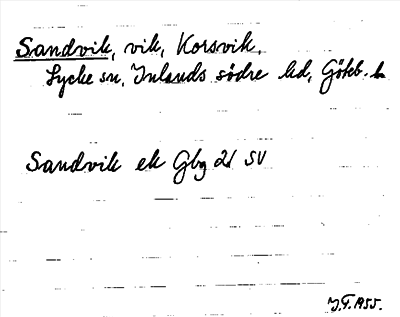 Sandvik, vik, Korsvik,
Lycke sn, Inlands södre hd, Göteb. l.
Sandvik ek Gbg 21 SV
J.F. 1955.